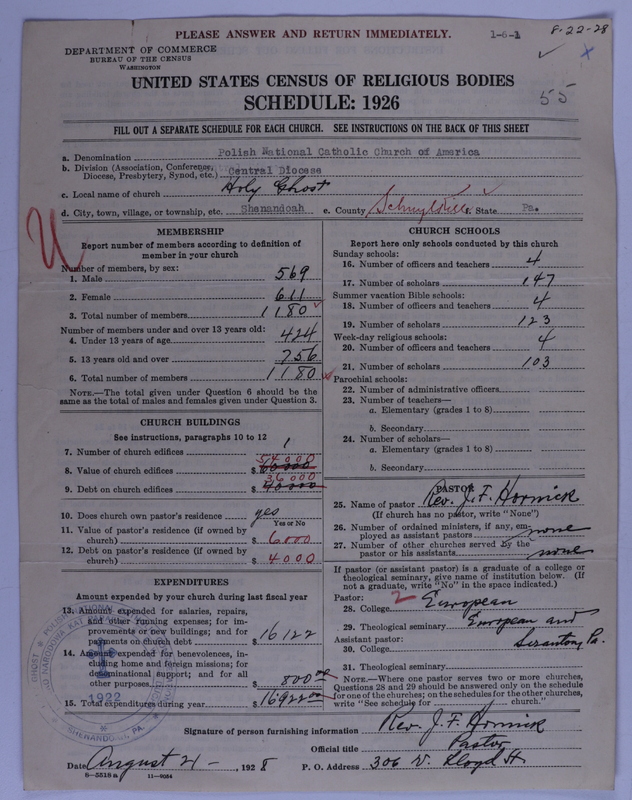 PLEASE ANSWER AND RETURN IMMEDIATELY.
1-6-1
8-22-28
DEPARTMENT OF COMMERCE
BUREAU OF THE CENSUS
WASHINGTON
UNITED STATES CENSUS OF RELIGIOUS BODIES
SCHEDULE: 1926
55
FILL OUT A SEPARATE SCHEDULE FOR EACH CHURCH. SEE INSTRUCTIONS ON THE BACK OF THIS SHEET
a. Denomination Polish National Catholic Church of America
b. Division (Association, Conference, Diocese, Presbytery, Synod, etc.) Central Diocese
c. Local name of church Holy Ghost
d. City, town, village, or township, etc. Shenandoah e. County Schuylkill f. State Pa.
MEMBERSHIP
Report number of members according to definition of
member in your church
Number of members, by sex:
1. Male 569
2. Female 611
3. Total number of members 1180
Number of members under and over 13 years old:
4. Under 13 years of age 424
5. 13 years old and over 756
6. Total number of members 1180
NOTE.—The total given under Question 6 should be
same as the total of males and females given under Question 3.
CHURCH BUILDINGS
See instructions, paragraphs 10 to 12
7. Number of church edifices 1
54000
8. Value of church edifices $ 60000
36000
9. Debt on church edifices $ 40000
10. Does church own pastor's residence yes
Yes or No
11. Value of pastor's residence (if owned by
church) $ 6000
12. Debt on pastor's residence (if owned by
church) $ 4000
EXPENDITURES
Amount expended by your church during last fiscal year
13. Amount expended for salaries, repairs,
and other running expenses; for im-
provements or new buildings; and for
payments on church debt $ 16122
14. Amount expended for benevolences, in-
cluding home and foreign missions; for
denominational support; and for all
other purposes $ 800 00
15. Total expenditures during year $ 16922 00
1922
SHENANDOAH, PA.
CHURCH SCHOOLS
Report here only schools conducted by this church
Sunday schools:
16. Number of officers and teachers 4
17. Number of scholars 147
Summer vacation Bible schools:
18. Number of officers and teachers 4
19. Number of scholars 123
Week-day religious schools:
20. Number of officers and teachers 4
21. Number of scholars 103
Parochial schools:
22. Number of administrative officers
23. Number of teachers—
a. Elementary (grades 1 to 8)
b. Secondary
24. Number of scholars—
a. Elementary (grades 1 to 8)
b. Secondary
PASTOR
25. Name of pastor Rev. J. F. Hornick
(If church has no pastor, write "None")
26. Number of ordained ministers, if any, em-
ployed as assistant pastors none
27. Number of other churches served by the
pastor or his assistants none
If pastor (or assistant pastor) is a graduate of a college or
theological seminary, give name of institution below. (If
not a graduate, write "No" in the space indicated.)
Pastor:
28. College 2 European
29. Theological seminary European and
Scranton, Pa.
Assistant pastor:
30. College
31. Theological seminary
NOTE.—Where one pastor serves two or more churches,
Questions 28 and 29 should be answered only on the schedule
for one of the churches; on the schedules for the other churches,
write "See schedule for church."
Signature of person furnishing information Rev. J. F. Hornick
Official title Pastor
Date August 21 -, 1928 P. O. Address 306 W. Lloyd St
8-5518a 11-9064